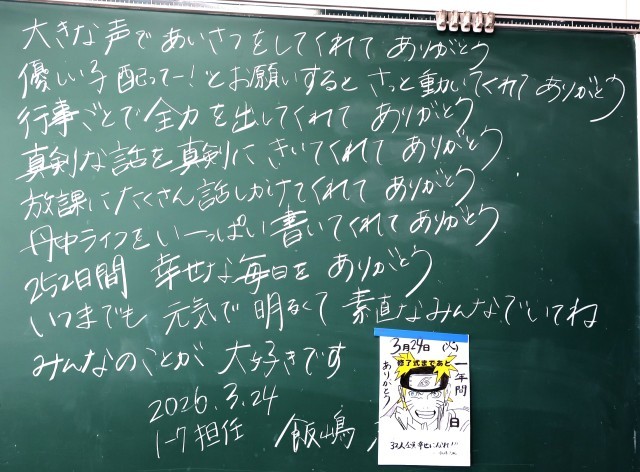 大きな声であいさつをしてくれて ありがとう
優しい子 配ってー!とお願いするとさっと動いてくれて ありがとう
行事ごとで全力を出してくれて ありがとう
真剣な話を真剣にきいてくれて ありがとう
放課にたくさん話しかけてくれて ありがとう
丹中ライフをいーっぱい書いてくれて ありがとう
252日間 幸せな毎日を ありがとう
いつまでも 元気で 明るくて 素直なみんなでいてね
みんなのことが 大好きです
2026.3.24
1-7担任 飯嶋
3月24日 (火)
修了式まであと
日
一年間
ありがとう
32人全員幸せになれ!!!